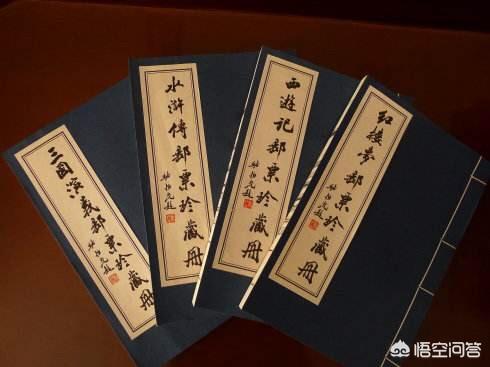 三国演义邮票珍藏册
水浒传邮票珍藏册
西游记邮票珍藏册
红楼梦邮票珍藏册
悟空问答